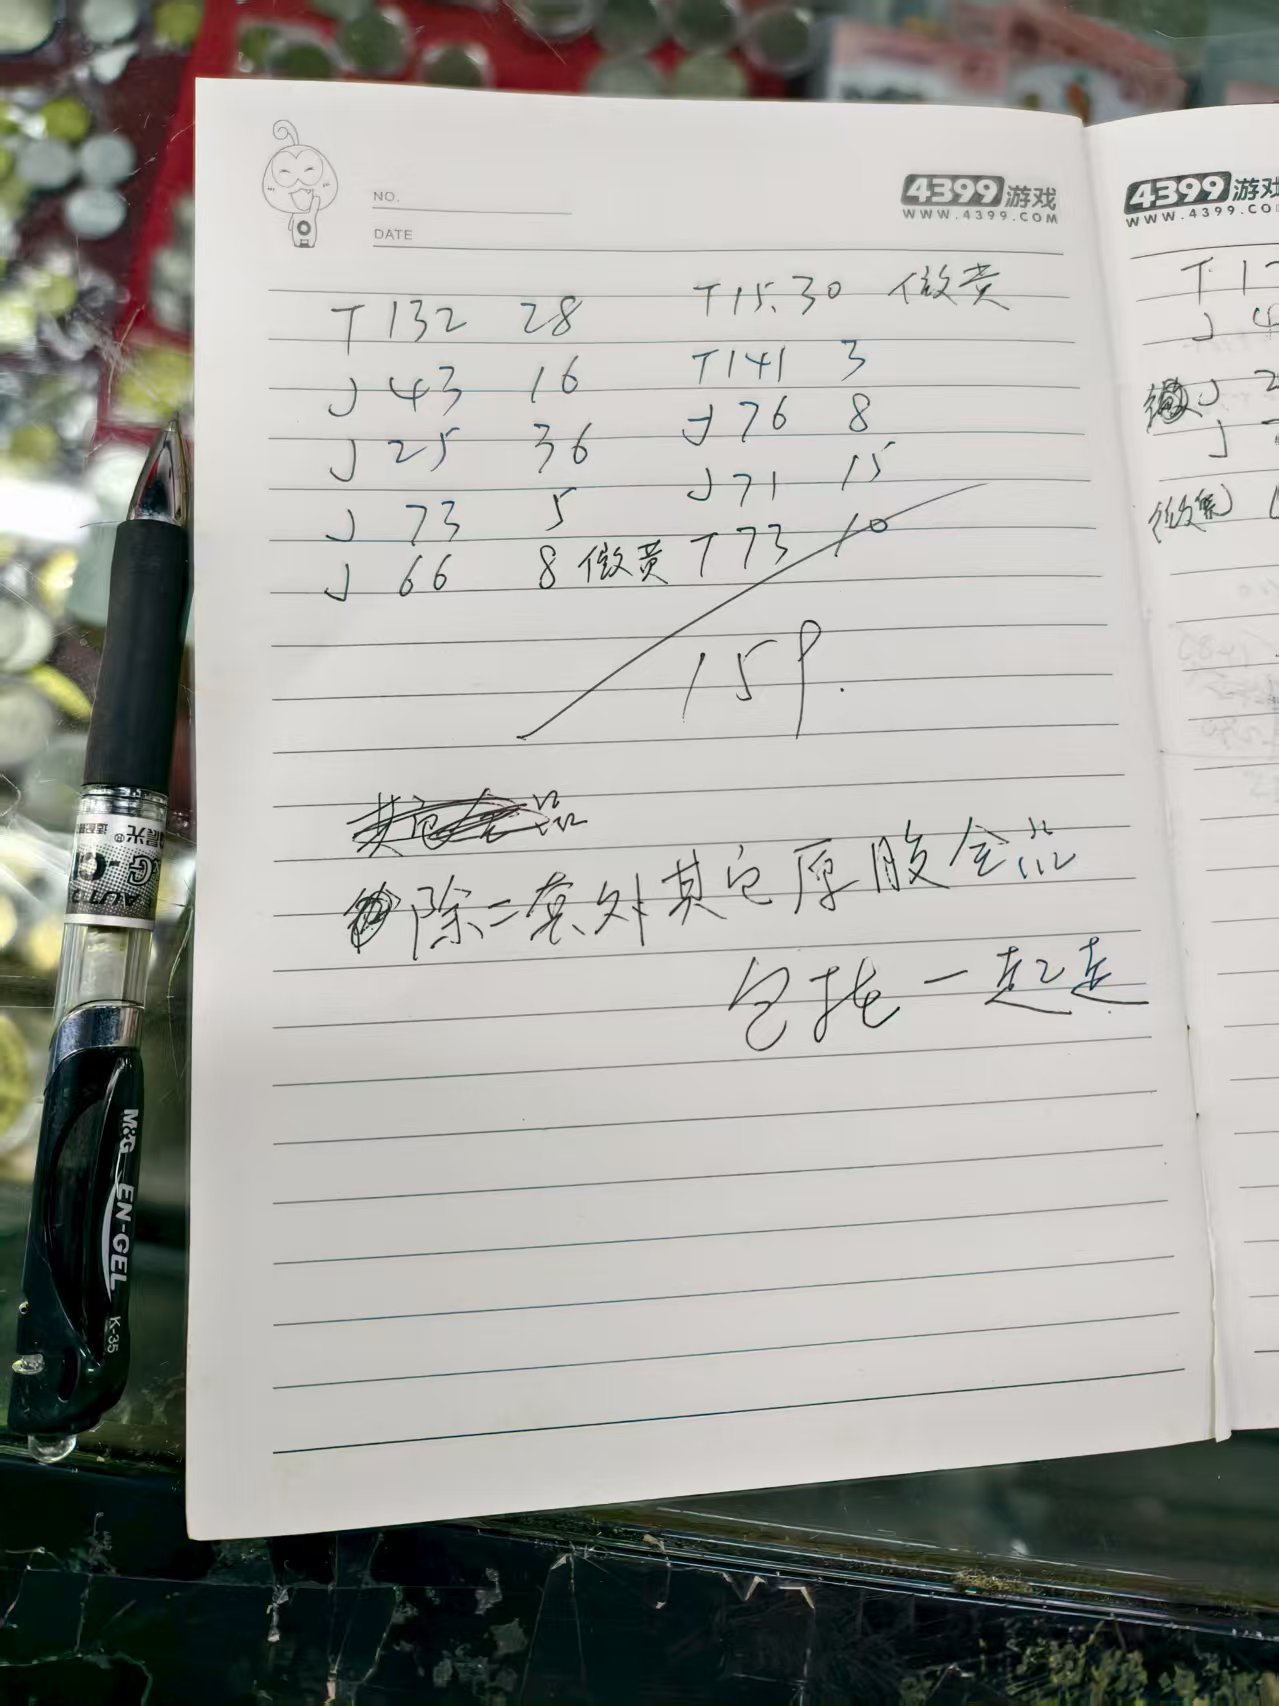 NO.
DATE
4399游戏
WWW.4399.COM
T 132 28
J 43 16
J 25 36
J 73 5
J 66 8 微黄
T15.30 微黄
T141 3
J 76 8
J 71 15
T 73 10
159.
除二套外其它原胶全品
包括一起走
4399游戏
WWW.4399.CO
T 1
J 4
J 2
J
微黑
晨光®
AUT
M&G EN-GEL K-35